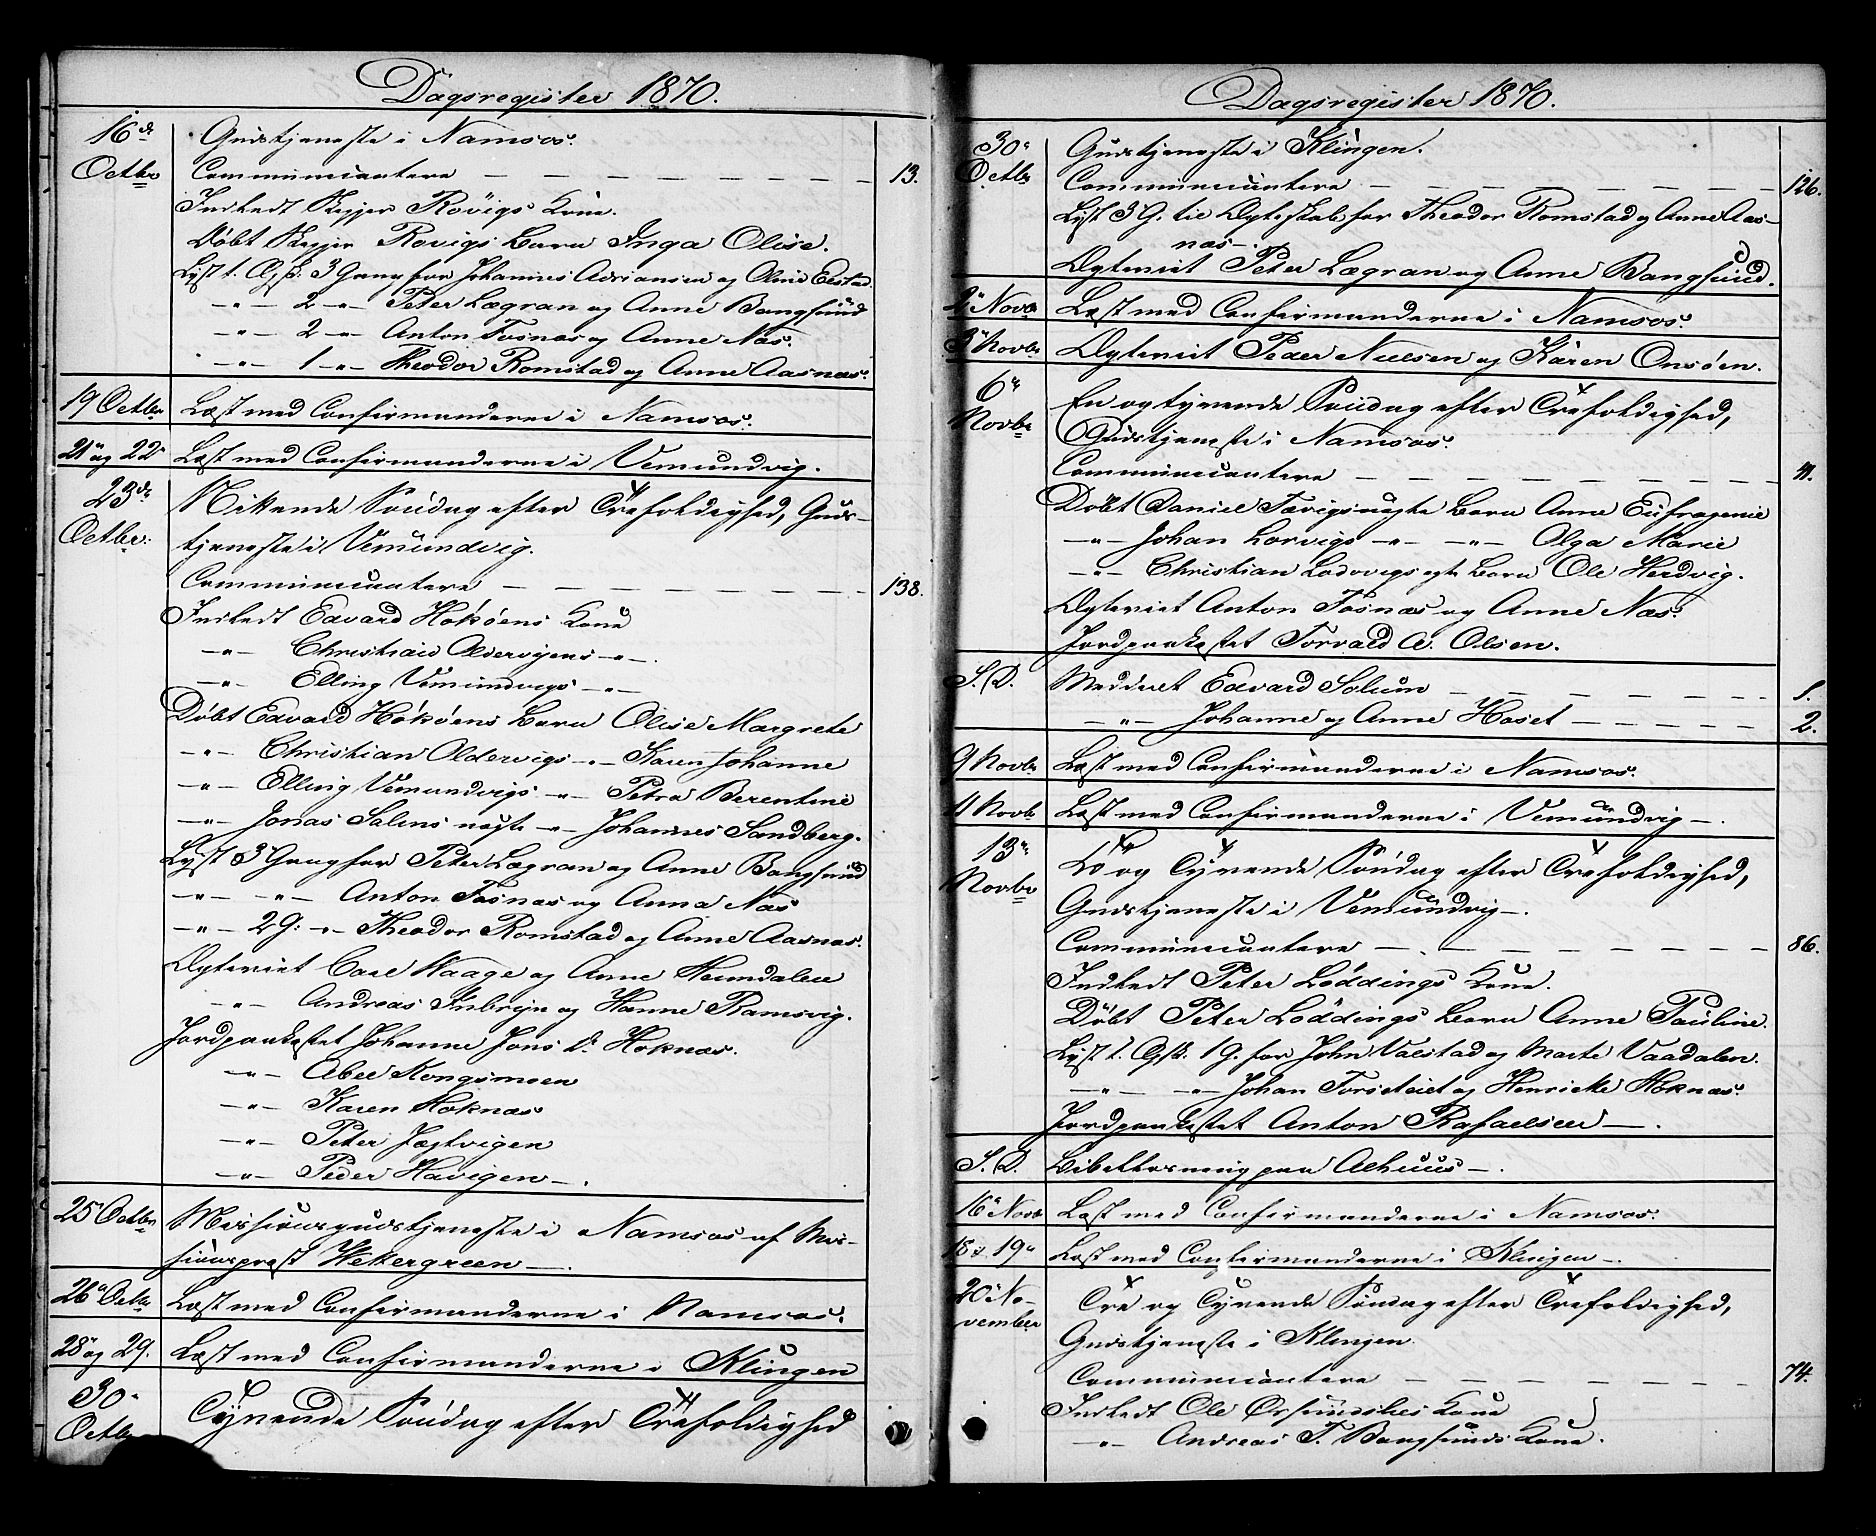 Dagsregister 1870.
16de Gudstjeneste i Namsos.
Octbr Communicantere — — — — — 13.
Indledt Skipper Rövigs Kone.
Döbt Skipper Rövigs Barn Inga Olise.
Lyst t. Ægt. 3 Gang for Johannes Adriansen og Oline Eestad.
—"— 2 —"— Peter Lægran og Anne Bangsund
—"— 2 —"— Anton Fosnæs og Anne Næs.
—"— 1 —"— Theodor Romstad og Anne Aasnæs.
19 Octbr Læst med Confirmanderne i Namsos.
21 og 22 Læst med Confirmanderne i Vemundvig.
23de Nittende Söndag efter Trefoldighed, Guds-
Octbr: tjeneste i Vemundvig.
Communicantere — — — — — 138.
Indledt Edvard Hököens Kone
—"— Christian Oldervigens —"—.
—"— Elling Vemundvigs —"—
Döbt Edvard Hököens Barn Olise Margrete
—"— Christian Oldervigs —"— Karen Johanne
—"— Elling Vemundvigs —"— Petra Berentine
—"— Jonas Salens uægte —"— Johannes Sandberg.
Lyst 3 Gang for Peter Lægran og Anne Bangsund
—"— —"— Anton Fosnæs og Anna Næs
—"— 2 G: —"— Theodor Romstad og Anne Aasnæs.
Ægteviet Carl Waage og Anne Heundalen
—"— Andreas Inbryn og Hanne Ramsvig.
Jordpaakastet Johanne Jons D. Hoknæs.
—"— Abel Kongsmoen
—"— Karen Hoknæs
—"— Peter Jægtvigen
—"— Peder Havigen —.
25 Octbr Missionsgudstjeneste i Namsos af Mis-
sionsprest Wettergreen —.
26 Octbr Læst med Confirmanderne i Namsos.
28 og 29. Læst med Confirmanderne i Klingen
30 Tyvende Söndag efter Trefoldighed
Octbr
Dagsregister 1870.
30 Gudstjeneste i Klingen.
Octbr Communicantere — — — — — 126.
Lyst 3 G. til Ægteskab for Theodor Romstad og Anne Aas-
næs —.
Ægteviet Peter Lægran og Anne Bangsund.
2 Novbr Læst med Confirmanderne i Namsos.
3 Novbr Ægteviet Peder Nielsen og Karen Onsöen.
6 En og tyvende Söndag efter Trefoldighed,
Novbr Gudstjeneste i Namsos.
Communicantere — — — — — 11.
Döbt Daniel Tævigs uægte Barn Anne Eufrosenie
—"— Johan Lorvigs —"— —"— Olga Marie
—"— Christian Lodovigs ægte Barn Ole Hedvig.
Ægteviet Anton Fosnæs og Anne Næs.
Jordpaakastet Torvald A. Olsen.
S. D. Medderet Edvard Solum — — — — — 1.
—"— Johanne og Anne Hoset — — — — — 2.
9 Novbr Læst med Confirmanderne i Namsos.
11 Novb Læst med Confirmanderne i Vemundvig —.
13 To og Tyvende Söndag efter Trefoldighed,
Novbr Gudstjeneste i Vemundvig —.
Communicantere — — — — — 86.
Indledt Peter Löddings Kone.
Döbt Peter Löddings Barn Anne Pauline.
Lyst t. Ægt. 1 G. for John Valstad og Marte Vaadalen.
—"— —"— Johan Forseteiet og Henrikke Hoknæs.
Jordpaakastet Anton Rafaelsen —.
S. D. Bibellæsning paa Aelhuus —.
16 Novb Læst med Confirmanderne i Namsos.
18 & 19 Læst med Confirmanderne i Klingen —.
20 No- Tre og Tyvende Söndag efter Trefoldighed,
vember Gudstjeneste i Klingen.
Communicantere — — — — — 74.
Indledt Ole Örsundslies Kone
—"— Andreas T. Bangsunds Kone.